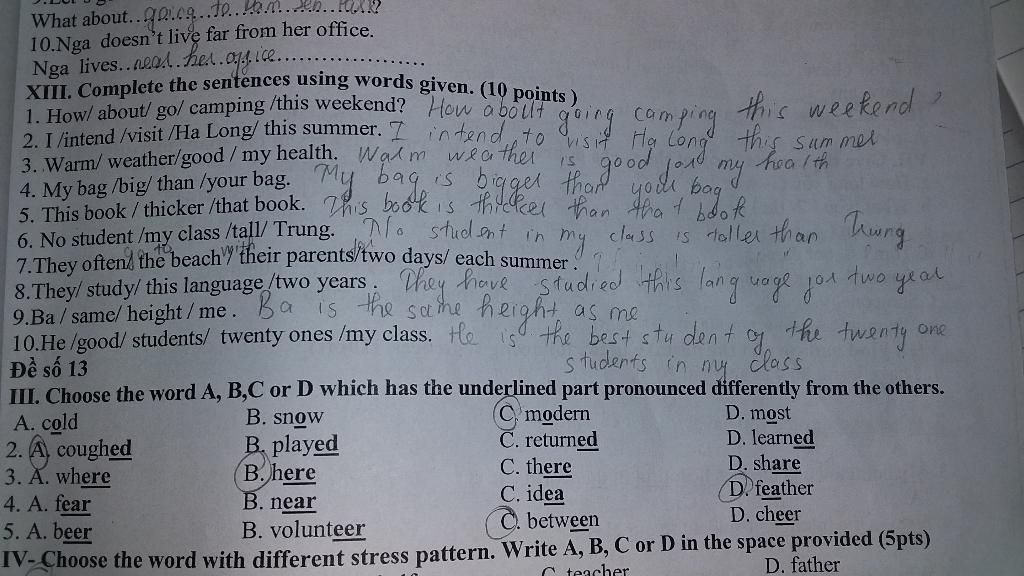 What about..going..to..
10.Nga doesn't live far from her office.
Nga lives..near..her..office.....................
XIII. Complete the sentences using words given. (10 points)
1. How/ about/ go/ camping /this weekend? How about going camping this weekend ?
2. I /intend /visit /Ha Long/ this summer. I intend to visit Ha Long this summer
3. Warm/ weather/good / my health. Warm weather is good for my health
4. My bag /big/ than /your bag. My bag is bigger than your bag
5. This book / thicker /that book. This book is thicker than that book
6. No student /my class /tall/ Trung. No student in my class is taller than Trung
7.They often/ the beach/ their parents/two days/ each summer .
8.They/ study/ this language /two years . They have studied this language for two year
9.Ba / same/ height / me . Ba is the same height as me
10.He /good/ students/ twenty ones /my class. He is the best student of the twenty one
students in my class
Đề số 13
III. Choose the word A, B,C or D which has the underlined part pronounced differently from the others.
A. cold B. snow C. modern D. most
2. A. coughed B. played C. returned D. learned
3. A. where B. here C. there D. share
4. A. fear B. near C. idea D. feather
5. A. beer B. volunteer C. between D. cheer
IV- Choose the word with different stress pattern. Write A, B, C or D in the space provided (5pts)
C. teacher D. father